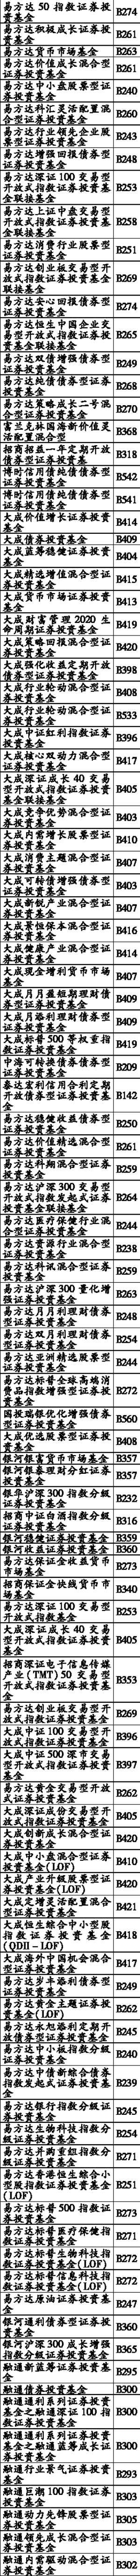 易方达 50 指数证券投
资基金
B274
易方达积极成长证券
投资基金
B261
易方达货币市场基金
B263
易方达价值成长混合型
证券投资基金
B261
易方达中小盘股票型证
券投资基金
B240
易方达科汇灵活配置混
合型证券投资基金
B260
易方达行业领先企业股
票型证券投资基金
B243
易方达增强回报债券型
证券投资基金
B248
易方达深证 100 交易型
开放式指数证券投资基金
联接基金
B253
易方达上证中盘交易型
开放式指数证券投资基金
联接基金
B258
易方达消费行业股票型
证券投资基金
B251
易方达创业板交易型开
放式指数证券投资基金
联接基金
B269
易方达安心回报债券型
证券投资基金
B274
易方达恒生中国企业交
易型开放式指数证券投
资基金联接基金
B265
易方达双债增强债券型
证券投资基金
B249
易方达纯债债券型证券
投资基金
B268
易方达策略成长二号混
合型证券投资基金
B270
富兰克林国海新价值灵
活配置混合型
B368
招商招益一年定期开放
债券型证券投资基金
B318
博时信用债纯债债券型
证券投资基金
B542
博时信用债纯债债券型
证券投资基金
B541
大成价值增长证券投资
基金
B414
大成债券投资基金
B409
大成蓝筹稳健证券投资
基金
B404
大成精选增值混合型证
券投资基金
B415
大成货币市场证券投资
基金
B413
大成财富管理 2020 生
命周期证券投资基金
B419
大成策略回报混合型证
券投资基金
B420
大成强化收益定期开放
债券型证券投资基金
B398
大成行业轮动混合型证
券投资基金
B408
大成行业轮动混合型证
券投资基金
B533
大成中证红利指数证券
投资基金
B396
大成核心双动力混合型
证券投资基金
B417
大成深证成长 40 交易
型开放式指数证券投资
基金联接基金
B405
大成竞争优势混合型证
券投资基金
B403
大成内需增长股票型证
券投资基金
B410
大成消费主题混合型证
券投资基金
B407
大成可转债增强债券型
证券投资基金
B403
大成新锐产业混合型证
券投资基金
B407
大成景恒保本混合型证
券投资基金
B416
大成健康产业混合型证
券投资基金
B414
大成现金增利货币市场
基金
B407
大成月月盈短期理财债
券型证券投资基金
B409
大成月添利理财债券型
证券投资基金
B409
大成标普 500 等权重指
数证券投资基金
B419
中海可转换债券债券型
证券投资基金
B209
泰达宏利信用合利定期
开放债券型证券投资基
金
B142
易方达稳健收益债券型
证券投资基金
B250
易方达价值精选混合型
证券投资基金
B261
易方达科翔混合型证券
投资基金
B259
易方达沪深 300 交易型
开放式指数发起式证券
投资基金联接基金
B264
易方达医疗保健行业混
合型证券投资基金
B244
易方达资源行业混合型
证券投资基金
B238
易方达科讯混合型证券
投资基金
B259
易方达沪深 300 量化增
强证券投资基金
B263
易方达月月利理财债券
型证券投资基金
B248
易方达双月利理财债券
型证券投资基金
B254
易方达亚洲精选股票型
证券投资基金
B244
易方达标普全球高端消
费品指数增强型证券投
资基金
B272
国投瑞银优化增强债券
型证券投资基金
B560
大成优选股票型证券投
资基金
B408
银河银富货币市场基金
B357
银河银泰理财分红证券
投资基金
B357
银华沪深 300 指数分级
证券投资基金
B232
招商中证白酒指数分级
证券投资基金
B316
银河稳健证券投资基金
B359
银河收益证券投资基金
B360
易方达保证金收益货币
市场基金
B273
招商保证金快线货币市
场基金
B340
易方达深证 100 交易型
开放式指数基金
B253
大成深证成长 40 交易
型开放式指数证券投资
基金
B405
招商深证电子信息传媒
产业(TMT)50 交易型
开放式指数证券投资基
金
B353
易方达创业板交易型开
放式指数证券投资基金
B269
大成中证 100 交易型开
放式指数证券投资基金
B396
大成中证 500 深市交易
型开放式指数证券投资
基金
B397
易方达黄金交易型开放
式证券投资基金
B262
大成深证成份交易型开
放式指数证券投资基金
B405
大成创新成长混合型证
券投资基金
B420
大成中小盘混合型证券
投资基金(LOF)
B410
大成产业升级股票型证
券投资基金(LOF)
B420
大成定增灵活配置混合
型证券投资基金
B421
大成恒生综合中小型股
指数证券投资基金
(QDII-LOF)
B418
大成海外中国机会混合
型证券投资基金
B417
易方达岁丰添利债券型
证券投资基金
B249
易方达黄金主题证券投
资基金(LOF)
B262
易方达永旭添利定期开
放债券型证券投资基金
B245
易方达中小板指数分级
证券投资基金
B240
易方达中债新综合债券
指数发起式证券投资基
金
B239
易方达银行指数分级证
券投资基金
B245
易方达生物科技指数分
级证券投资基金
B254
易方达并购重组指数分
级证券投资基金
B271
易方达香港恒生综合小
型股指数证券投资基金
(LOF)
B251
易方达标普 500 指数证
券投资基金
B273
易方达标普医疗保健指
数证券投资基金
B271
易方达标普生物科技指
数证券投资基金(LOF)
B272
易方达标普信息科技指
数证券投资基金(LOF)
B272
易方达原油证券投资基
金
B247
银河通利债券型证券投
资基金
B360
银河沪深 300 成长增强
指数分级证券投资基金
B365
融通新蓝筹证券投资基
金
B295
融通债券投资基金
B300
融通通利系列证券投资
基金之融通深证 100 指
数证券投资基金
B300
融通通利系列证券投资
基金之融通蓝筹成长证
券投资基金
B300
融通行业景气证券投资
基金
B293
融通巨潮 100 指数证券
投资基金
B303
融通动力先锋股票型证
券投资基金
B305
融通领先成长混合型证
券投资基金
B303
融通内需驱动混合型证
券投资基金
B302